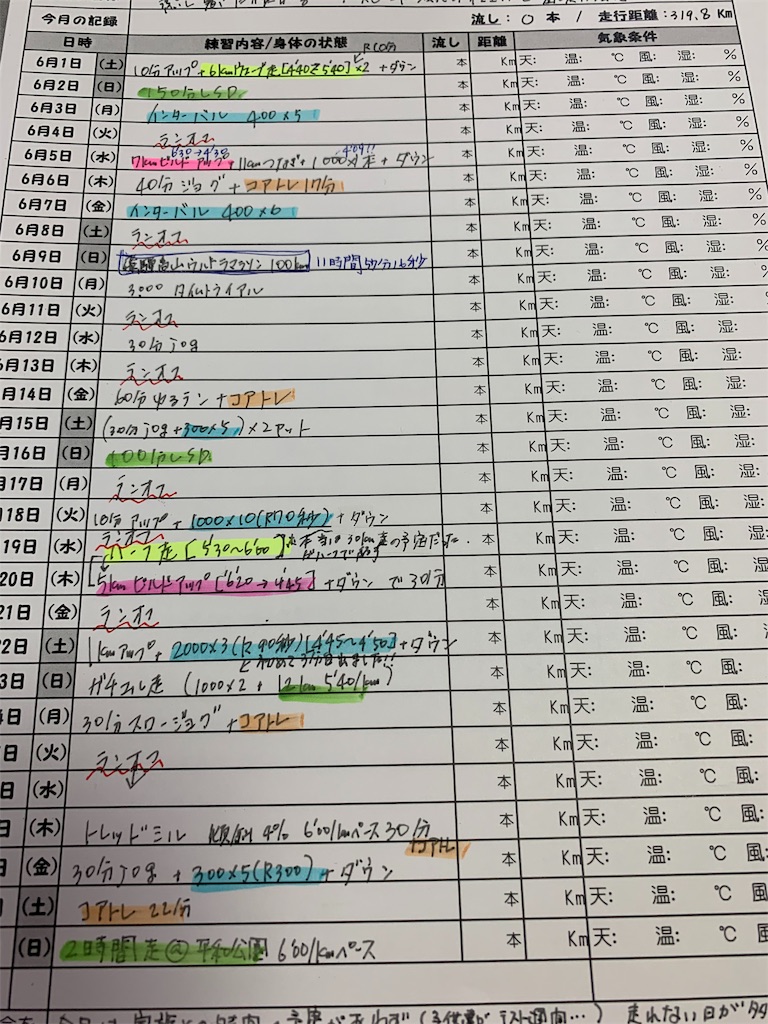 今月の記録 流し：0 本 / 走行距離：319.8 Km
日時 練習内容/身体の状態 流し 距離 気象条件
R10分
6月1日 (土) 10分アップ+6kmウェーブ走[4'40⇄5'40]×2 +ダウン 本 Km 天: 温: ℃ 風: 湿: %
6月2日 (日) 150分LSD 本 Km 天: 温: ℃ 風: 湿: %
6月3日 (月) インターバル 400×5 本 Km 天: 温: ℃ 風: 湿: %
6月4日 (火) ランオフ 本 Km 天: 温: ℃ 風: 湿: %
6'30→4'38 4'09!!
6月5日 (水) 7kmビルドアップ+1kmつなぎ+1000×1本+ダウン 本 Km 天: 温: ℃ 風: 湿: %
6月6日 (木) 40分ジョグ+コアトレ17分 本 Km 天: 温: ℃ 風: 湿: %
6月7日 (金) インターバル 400×6 本 Km 天: 温: ℃ 風: 湿: %
6月8日 (土) ランオフ 本 Km 天: 温: ℃ 風: 湿: %
6月9日 (日) 飛騨高山ウルトラマラソン100km 11時間51分16秒 本 Km 天: 温: ℃ 風: 湿: %
6月10日 (月) 3000 タイムトライアル 本 Km 天: 温: ℃ 風: 湿:
6月11日 (火) ランオフ 本 Km 天: 温: ℃ 風: 湿:
6月12日 (水) 30分jog 本 Km 天: 温: ℃ 風: 湿:
6月13日 (木) ランオフ 本 Km 天: 温: ℃ 風: 湿:
月14日 (金) 60分ゆるラン+コアトレ 本 Km 天: 温: ℃ 風: 湿:
月15日 (土) (30分jog+300×5)×2セット 本 Km 天: 温: ℃ 風: 湿:
月16日 (日) 100分LSD 本 Km 天: 温: ℃ 風: 湿:
月17日 (月) ランオフ 本 Km 天: 温: ℃ 風: 湿:
月18日 (火) 10分アップ+1000×10(R70秒)+ダウン 本 Km 天: 温: ℃ 風: 湿:
ランオフ
19日 (水) ハーフ走[5'30〜6'00] ※本当は30km走の予定だった 本 Km 天: 温: ℃ 風: 湿:
20日 (木) 5kmビルドアップ[6'20→4'45]+ダウン で30分 本 Km 天: 温: ℃ 風: 湿:
21日 (金) ランオフ 本 Km 天: 温: ℃ 風: 湿:
22日 (土) 1kmアップ+2000×3(R90秒)[4'45〜4'50]+ダウン 本 Km 天: 温: ℃ 風:
3日 (日) ガチユル走 (1000×2+12km 5'40/km) 本 Km 天: 温: ℃ 風:
日 (月) 30分スロージョグ+コアトレ 本 Km 天: 温: ℃ 風:
日 (火) ランオフ 本 Km 天: 温: ℃ 風:
日 (水) 本 Km 天: 温: ℃ 風:
日 (木) トレッドミル 傾斜4% 6'00/kmペース30分 本 Km 天: 温: ℃ 風:
コアトレ
(金) 30分jog+300×5(R300)+ダウン 本 Km 天: 温: ℃ 風:
(土) コアトレ22分 本 Km 天: 温: ℃ 風
(日) 2時間走@平和公園 6'00/kmペース 本 Km 天: 温: ℃
走れない日が多